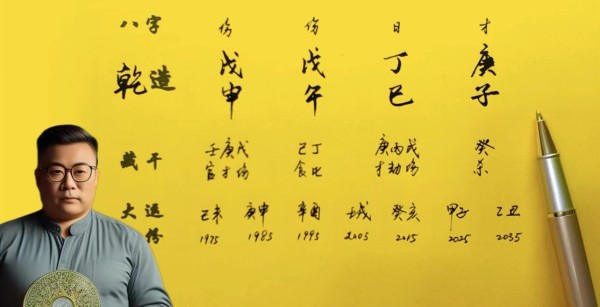 八字 伤 伤 日 才
乾造 戊申 戊午 丁巳 庚子
藏干 壬庚戊 己丁 庚丙戊 癸
官才伤 食比 才劫伤 杀
大运 己未 庚申 辛酉 壬戌 癸亥 甲子 乙丑
份 1975 1985 1995 2005 2015 2025 2035